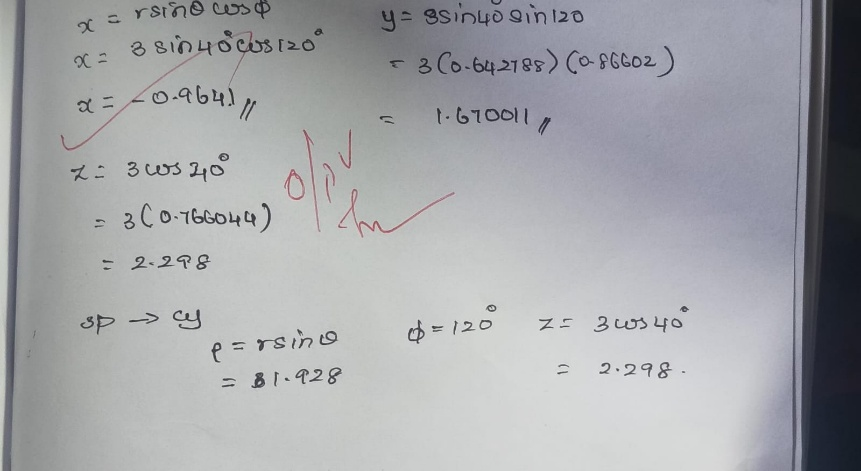 x = rsinθ cosϕ
x = 3 sin40° cos120°
x = -0.9641 //
y = 3sin40 sin120
= 3(0.642788)(0.86602)
= 1.670011 //
z = 3cos40°
= 3(0.766044)
= 2.298
o/p ✓
sp → cy
ρ = rsinθ
= 1.928
ϕ = 120°
z = 3cos40°
= 2.298.